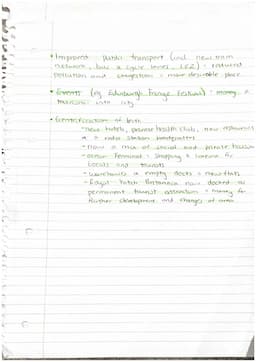 • Improved public transport (incl. new tram
network, bus & cycle lanes, LEZ) = reduced
pollution and congestion = more desirable place
• Events (eg Edinburgh Fringe Festival) = money &
tourism into city
• Gentrification of Leith
- new hotels, private health clubs, new restaurants
& a radio station headquarters
- now a mix of social and private housing
- ocean Terminal = shopping & cinema for
locals and tourists
- warehouses & empty docks = new flats
- Royal Yacht Britannia now docked as
permanent tourist attraction = money for
further development and changes of area